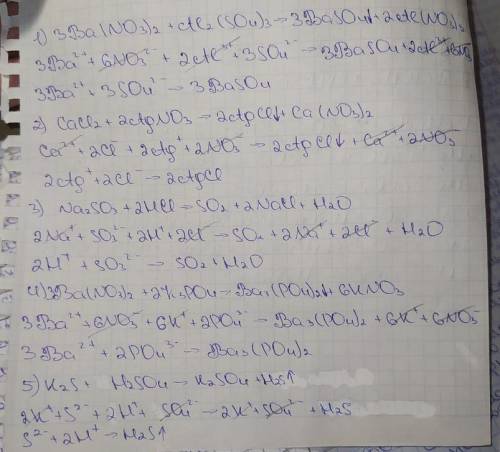 1) 3Ba(NO3)2 + Al2(SO4)3 → 3BaSO4↓ + 2Al(NO3)3
3Ba²⁺ + 6NO3²⁻ + 2Al³⁺ + 3SO4²⁻ → 3BaSO4 + 2Al³⁺ + 6NO3
3Ba²⁺ + 3SO4²⁻ → 3BaSO4
2) CaCl2 + 2AgNO3 → 2AgCl↓ + Ca(NO3)2
Ca²⁺ + 2Cl⁻ + 2Ag⁺ + 2NO3⁻ → 2AgCl↓ + Ca²⁺ + 2NO3⁻
2Ag⁺ + 2Cl⁻ → 2AgCl
3) Na2SO3 + 2HCl → SO2 + 2NaCl + H2O
2Na⁺ + SO3²⁻ + 2H⁺ + 2Cl⁻ → SO2 + 2Na⁺ + 2Cl⁻ + H2O
2H⁺ + SO3²⁻ → SO2 + H2O
4) 3Ba(NO3)2 + 2K3PO4 → Ba3(PO4)2↓ + 6KNO3
3Ba²⁺ + 6NO3⁻ + 6K⁺ + 2PO4³⁻ → Ba3(PO4)2 + 6K⁺ + 6NO3⁻
3Ba²⁺ + 2PO4³⁻ → Ba3(PO4)2
5) K2S + H2SO4 → K2SO4 + H2S↑
2K⁺ + S²⁻ + 2H⁺ + SO4²⁻ → 2K⁺ + SO4²⁻ + H2S
S²⁻ + 2H⁺ → H2S↑